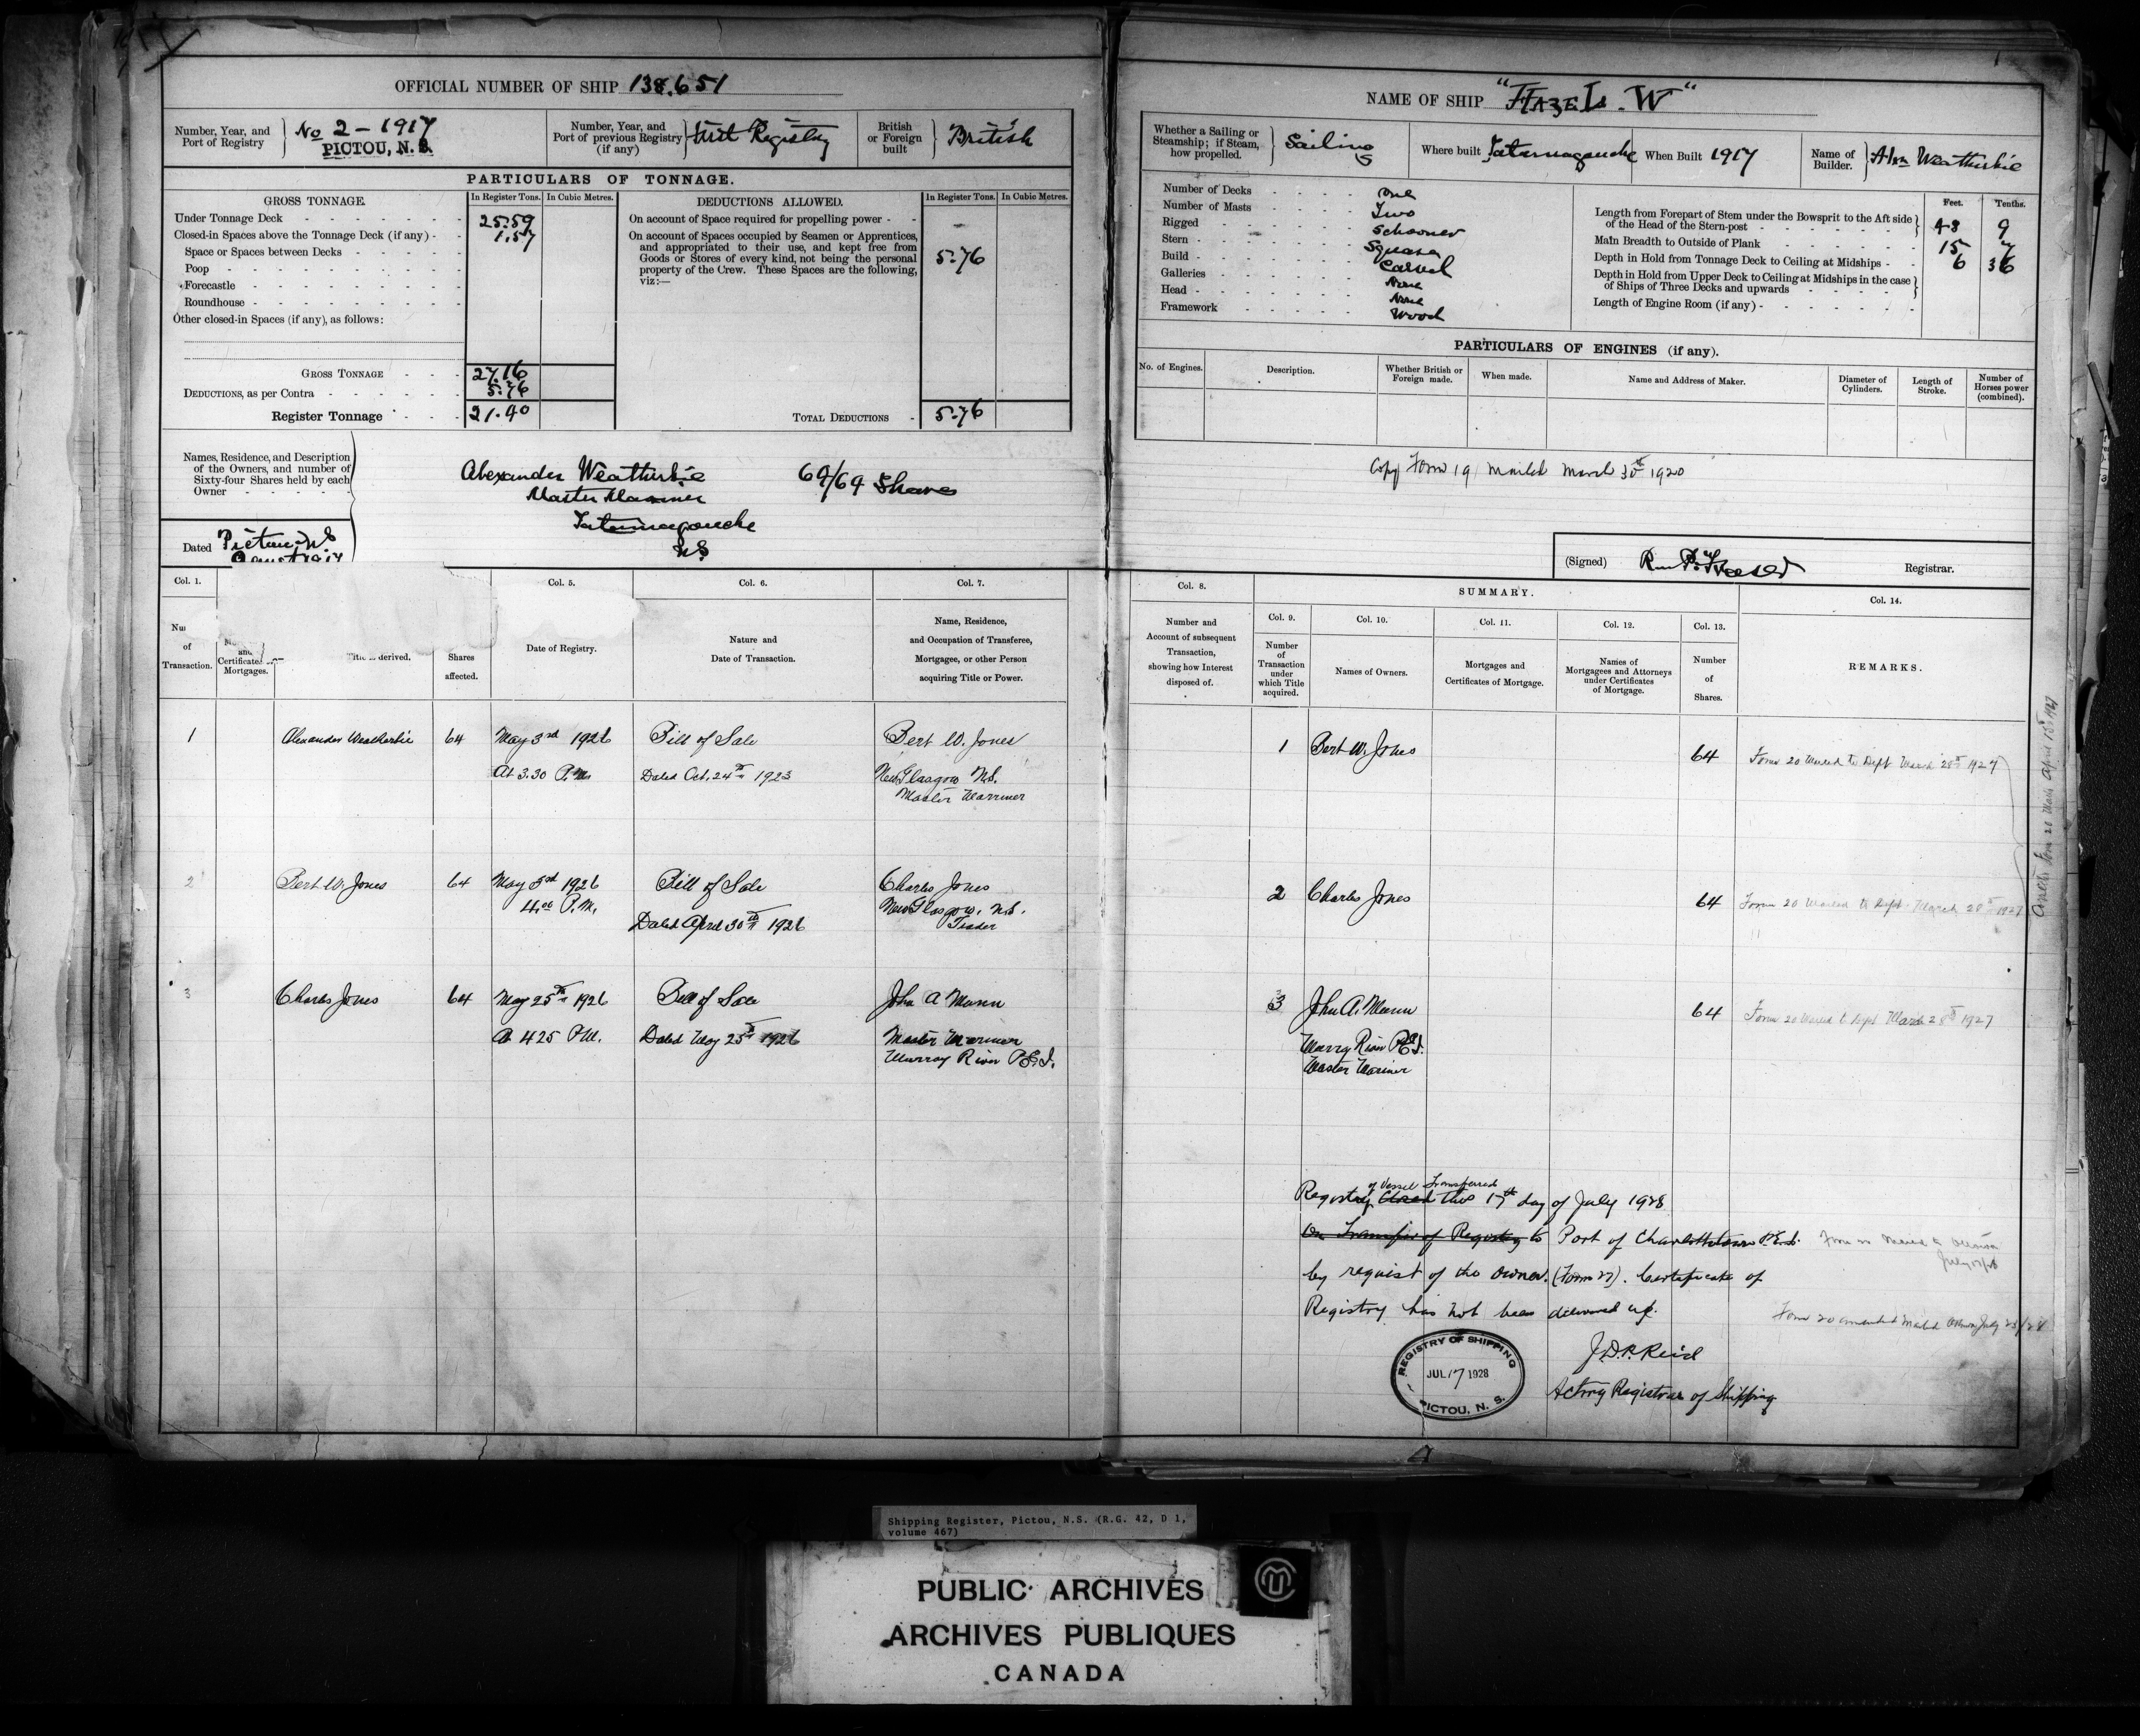 OFFICIAL NUMBER OF SHIP 138,651
Number, Year, and Port of Registry
No 2 - 1917
PICTOU, N.S.
Number, Year, and Port of previous Registry (if any)
First Registry
British or Foreign built
British
PARTICULARS OF TONNAGE.
GROSS TONNAGE.
In Register Tons.
In Cubic Metres.
DEDUCTIONS ALLOWED.
In Register Tons.
In Cubic Metres.
Under Tonnage Deck 25.59
Closed-in Spaces above the Tonnage Deck (if any) 1.57
Space or Spaces between Decks
Poop
Forecastle
Roundhouse
Other closed-in Spaces (if any), as follows:
GROSS TONNAGE 27.16
DEDUCTIONS, as per Contra 5.76
Register Tonnage 21.40
On account of Space required for propelling power
On account of Spaces occupied by Seamen or Apprentices,
and appropriated to their use, and kept free from
Goods or Stores of every kind, not being the personal
property of the Crew. These Spaces are the following,
viz:—
5.76
TOTAL DEDUCTIONS 5.76
Names, Residence, and Description
of the Owners, and number of
Sixty-four Shares held by each
Owner
Alexander Weatherbie 64/64 Shares
Master Mariner
Tatamagouche
NS
Dated Pictou, NS
Col. 1.
Col. 5.
Col. 6.
Col. 7.
of
Transaction.
and
Certificates
Mortgages.
Title is derived.
Shares
affected.
Date of Registry.
Nature and
Date of Transaction.
Name, Residence,
and Occupation of Transferee,
Mortgagee, or other Person
acquiring Title or Power.
1 Alexander Weatherbie 64 May 3rd 1926 Bill of Sale Bert W. Jones
At 3.30 P.M. Dated Oct. 24th 1923 New Glasgow N.S.
Master Mariner
2 Bert W. Jones 64 May 3rd 1926 Bill of Sale Charles Jones
4.00 P.M. New Glasgow, N.S.
Dated April 30th 1926 Trader
3 Charles Jones 64 May 25th 1926 Bill of Sale John A Munn
At 4.25 P.M. Dated May 25th 1926 Master Mariner
Murray River P.E.I.
NAME OF SHIP "HAZEL. W"
Whether a Sailing or Steamship; if Steam, how propelled.
Sailing
Where built Tatamagouche
When Built 1917
Name of Builder.
Alex Weatherbie
Number of Decks One
Number of Masts Two
Rigged Schooner
Stern Square
Build Carvel
Galleries None
Head None
Framework Wood
Feet. Tenths.
Length from Forepart of Stem under the Bowsprit to the Aft side
of the Head of the Stern-post 48 9
Main Breadth to Outside of Plank 15 7
Depth in Hold from Tonnage Deck to Ceiling at Midships 6 36
Depth in Hold from Upper Deck to Ceiling at Midships in the case
of Ships of Three Decks and upwards
Length of Engine Room (if any)
PARTICULARS OF ENGINES (if any).
No. of Engines.
Description.
Whether British or Foreign made.
When made.
Name and Address of Maker.
Diameter of Cylinders.
Length of Stroke.
Number of Horses power (combined).
Copy Form 19 mailed March 30th 1920
(Signed)
Registrar.
Col. 8.
SUMMARY.
Col. 14.
Col. 9.
Col. 10.
Col. 11.
Col. 12.
Col. 13.
Number and
Account of subsequent
Transaction,
showing how Interest
disposed of.
Number
of
Transaction
under
which Title
acquired.
Names of Owners.
Mortgages and
Certificates of Mortgage.
Names of
Mortgagees and Attorneys
under Certificates
of Mortgage.
Number
of
Shares.
REMARKS.
1 Bert W. Jones 64 Form 20 Mailed to Dept March 28th 1927
2 Charles Jones 64 Form 20 Mailed to Dept. March 28th 1927
3 John A. Munn 64 Form 20 Mailed to Dept March 28th 1927
Murry River P.E.I.
Master Mariner
Form 20 April 13th 1927
of Vessel Transferred
Registry Closed this 17th day of July 1928
On Transfer of Registry to Port of Charlottetown P.E.I.
by request of the owner. (Form 27). Certificate of
Registry has not been delivered up.
Form 20 amended Mailed Ottawa July 23/28
J.D.P. Reid
Acting Registrar of Shipping
REGISTRY OF SHIPPING
JUL 17 1928
PICTOU, N. S.
Shipping Register, Pictou, N.S. (R.G. 42, D 1,
volume 467)
PUBLIC ARCHIVES
ARCHIVES PUBLIQUES
CANADA